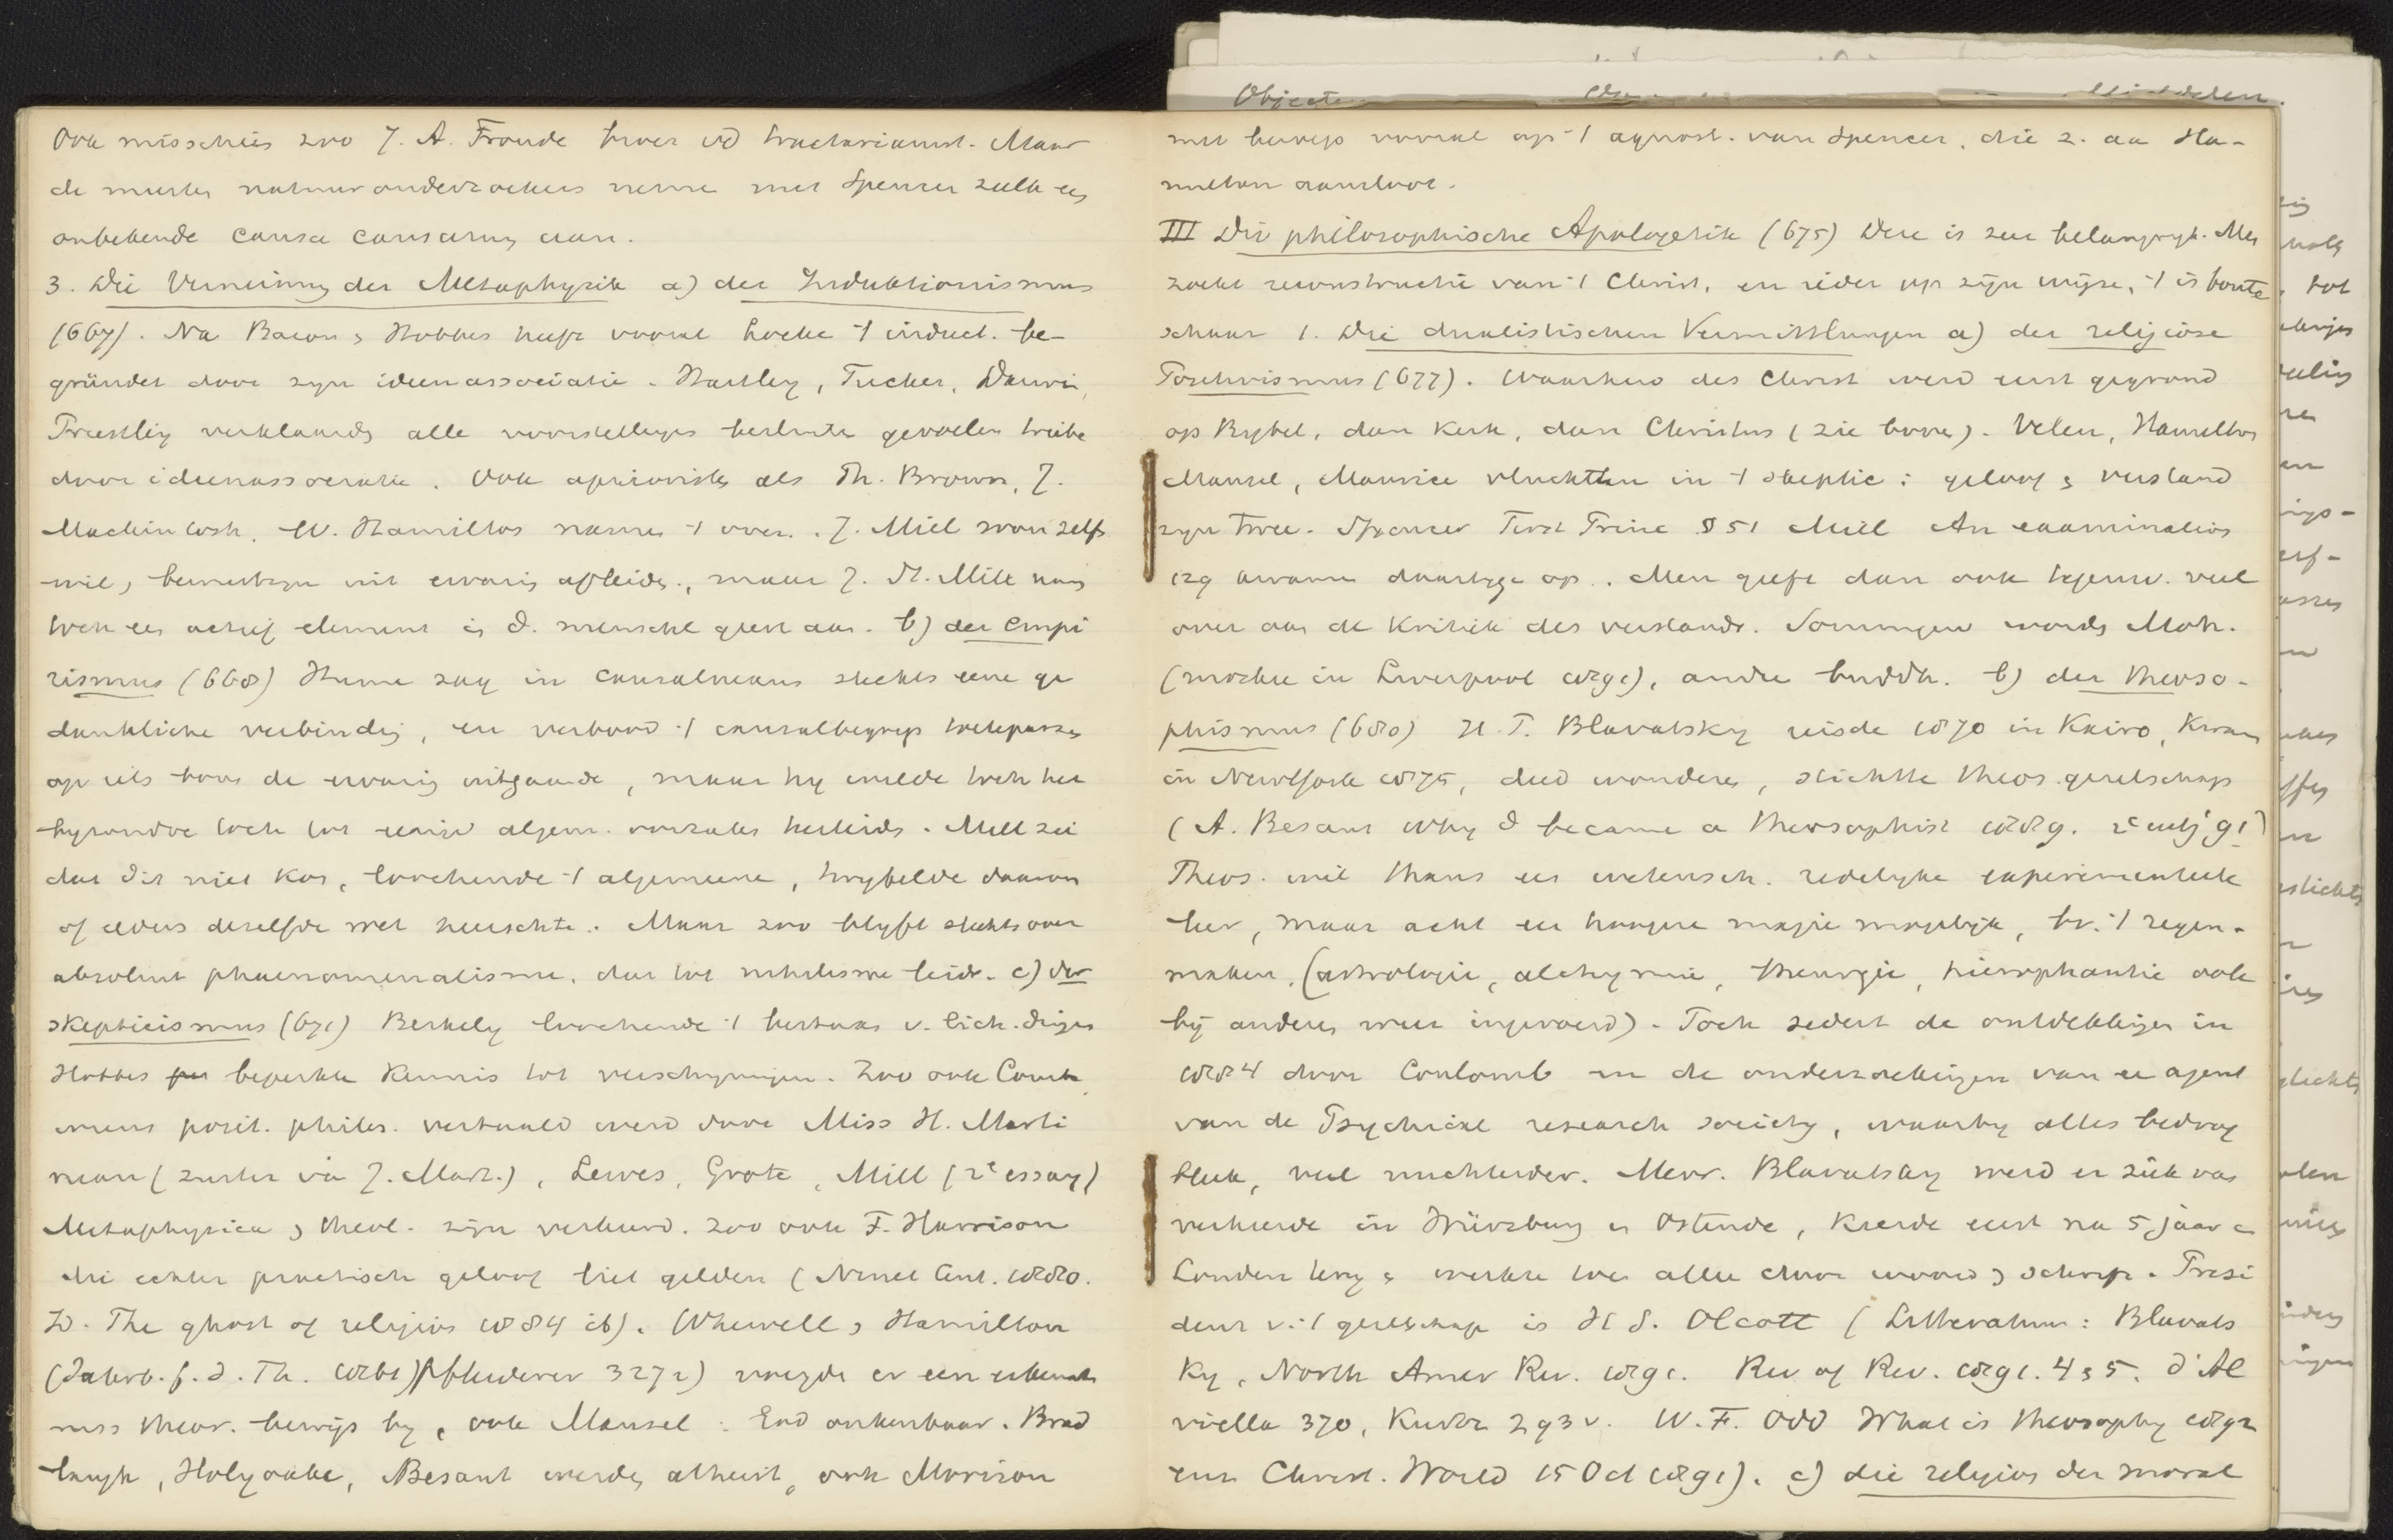 Objecte
Ook misschien zoo J. A. Froude broer vd tractarianist. Maar
de meeste natuuronderzoekers neme met Spencer zulk een
onbekende causa causarum aan.
3. Die Verneinung der Metaphysik a) der Induktionismus
(667). Na Bacon & Hobbes heeft vooral Locke 't induct. be-
gründet door zyn ideenassociatie. Hartley, Tucker, Darwin,
Priestley verklaarde alle voorstellingen besluite gevoelen
door ideenassociatie. Ook aprioriste als Th. Brown, J.
Mackintosh, W. Hamilton namen 't over. J. Mill won zelfs
wil, bewustzyn uit ervaring afleide, maar J. St. Mill nam
toch een actief element in d. menschl geest aan. b) der Empi
rismus (668) Hume zag in causalnexus slechts eene ge
dankliche verbinding, en verbood 't causalbegrip toetepassen
op iets boven de ervaring uitgaande, maar hy wilde toch het
byzondre toch tot eenige algem. oorzaken herleide. Mill zei
dat dit niet kon, loochende 't algemeene, twyfelde daarom
of elders dezelfde wet heerschte. Maar zoo blyft slechts over
absoluut phaenomenalisme, dat tot nihilisme leidt. c) der
Skepticismus (671) Berkely loochende 't bestaan v. lich. dingen
Hobbes beperkte kennis tot verschyningen. Zoo ook Comte,
wiens posit. philos. vertaald werd door Miss H. Marti
neau (zuster van J. Mart.), Lewes, Grote, Mill (2e essay)
Metaphysica & theol. zijn verkeerd. Zoo ook F. Harrison
die echter practisch geloof liet gelden (Ninet Cent. 1880.
ID. The ghost of religion 1884 ib). Whewell & Hamilton
(Jahrb. f. d. Th. 1861) Pfleiderer 3272) voegde er een
niss theor. bewijs by, ook Mansel: God onkenbaar. Brad
laugh, Holyoake, Besant werde atheist, ook Morison
met beroep vooral op 't agnost. van Spencer, die z. aan Ha-
milton aansloot.
III Die philosophische Apologetik (675) Deze is zeer belangryk. Men
zoekt reconstructie van 't Christ, en ieder op zijn wijze, 't is bonte
schaar 1. Die dualistischen Vermittlungen a) der religiöse
Positivismus (677). Waarheid des Christ werd eerst gegrond
op Bybel, dan Kerk, dan Christus (zie boven). Velen, Hamilton
Mansel, Maurice vluchtten in 't skeptic: geloof & verstand
zyn twee. Spencer First Princ. § 51 Mill An examination
129 kwamen daartege op. Men geeft dan ook tegenw. veel
over aan de Kritiek des verstands. Sommigen worde Moh.
(moskee in Liverpool 1891), andre buddh. b) der Theoso-
phismus (680) H. P. Blavatsky reisde 1870 in Kairo, kwam
in NewYork 1875, deed wonderen, stichtte theos. gezelschap
(A. Besant Why I became a theosophist 1889. 2e uitg 91)
Theos. wil thans een wetensch. redelyke experimenteele
leer, maar acht een hoogere magie mogelyk, bv. 't regen-
maken, (astrologie, alchymie, theurgie, hierophantie ook
bij anderen weer ingevoerd). Toch sedert de ontdekkingen in
1884 door Coulomb en de onderzoekingen van een agent
van de Psychical research society, waarby alles bedrog
bleek, veel nuchterder. Mevr. Blavatsky werd er ziek van
verkeerde in Würzburg en Ostende, keerde eerst na 5 jaar in
Londen terug & werkte toen alleen door woord & schrift. Presi
dent v. 't gezelschap is H S. Olcott (Litteratuur: Blavats
ky, North Amer Rev. 1891. Rev of Rev. 1891. 4 & 5. d'Al
viella 370, Kuyper 293 v. W. F. ODD What is theosophy 1892
Christ. World 15 Oct 1891). c) die religion der moral